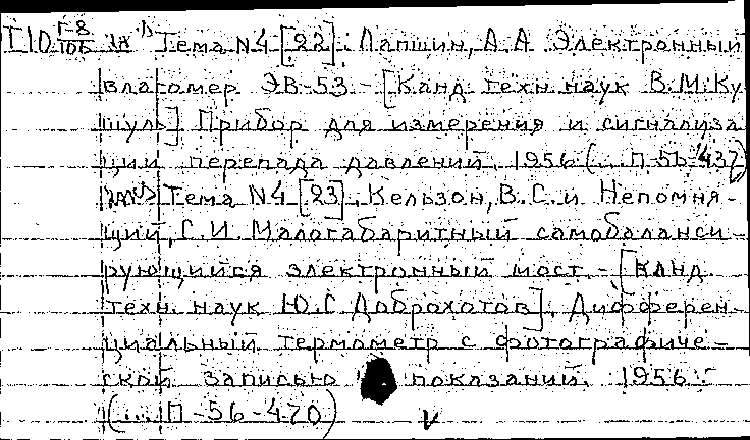 Т10 Г-8/106 Тема N4 [22]. Лапшин, А.А. Электронный
влагомер ЭВ-53 - [Канд. техн. наук В.М. Ку
шуль]. Прибор для измерения и сигнализа
ции перепада давлений. 1956 (...П-56-437)
Тема N4 [23]. Кельзон, В.С. и Непомня-
щий, С.И. Малогабаритный самобаланси-
рующийся электронный мост. - [Канд.
техн. наук Ю.С. Доброхотов]. Дифферен-
циальный термометр с фотографиче-
ской записью показаний. 1956.
(...П-56-470) V